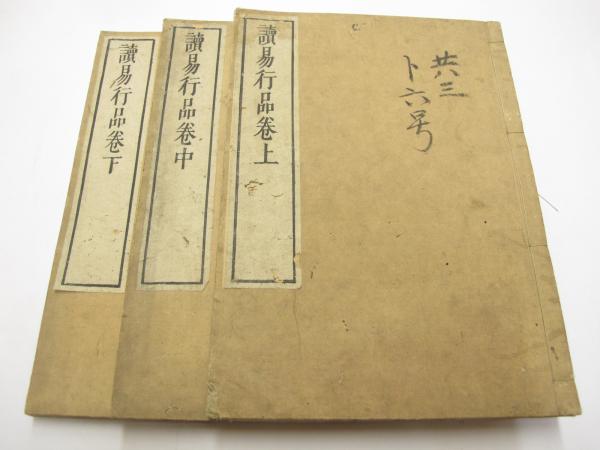 共三
ト六号
讀易行品卷上
讀易行品卷中
讀易行品卷下